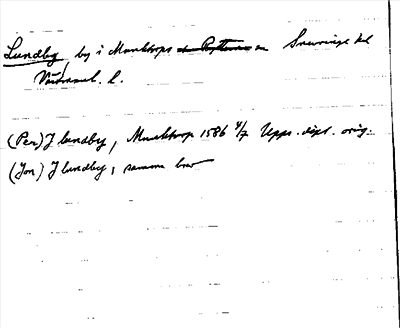 Lundby, by i Munktorps sn Snevringe hd
Västmanl. l.
(Per) J lundby, Munktorp 1586 4/7 Upps. dipl. orig.
(Jon) J lundby, samma brev